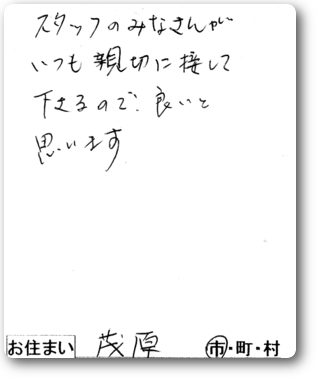 スタッフのみなさんが
いつも親切に接して
下さるので、良いと
思います
お住まい 茂原 市・町・村